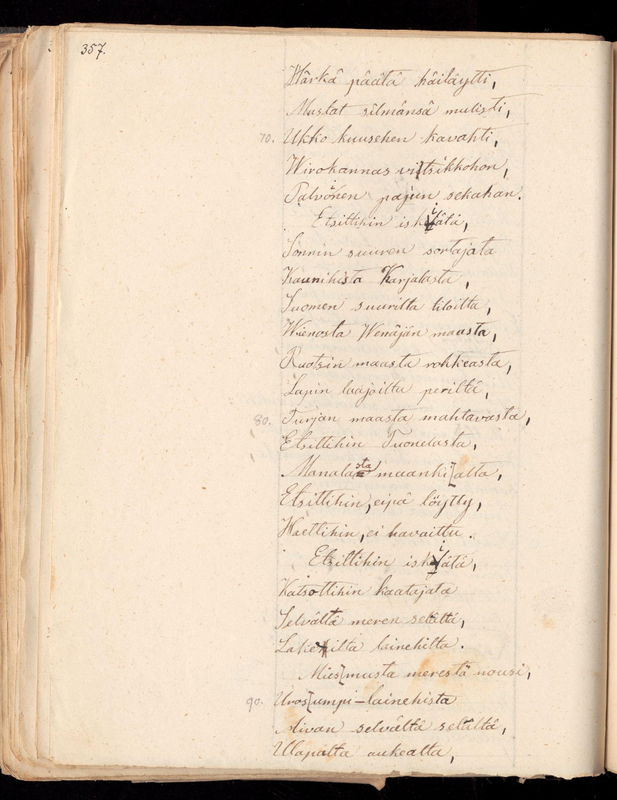 357.
Härkä päätä häiläytti,
Mustat silmänsä mulisti,
70. Ukko kuusehen kavahti,
Wirokannas vitsikkohon,
Palvonen pajun sekahan.
Etsittihin iskijätä,
Sonnin suuren sortajata
Kaunihista Karjalasta,
Suomen suurilta tiloilta,
Wienosta Wenäjän maasta,
Ruotsin maasta rohkeasta,
Lapin laajoilta periltä,
80. Turjan maasta mahtavasta,
Etsittihin Tuonelasta,
Manalasta maanki alta,
Etsittihin, eipä löytty,
Haettihin, ei havaittu.
Etsittihin iskijätä,
Katsottihin kaatajata
Selvältä meren selältä,
Lakeilta lainehilta.
Mies musta merestä nousi,
90. Uros umpi-lainehista
Aivan selvältä selältä,
Ulapalta aukealta,